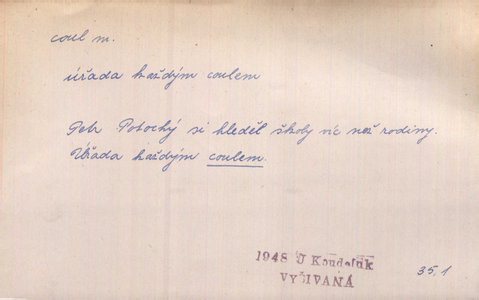 coul m.
úřada každým coulem
Petr Potochý si hleděl školy víc než rodiny.
Úřada každým coulem.
1948 J Koudelák
VYŽÍVANÁ
35,1